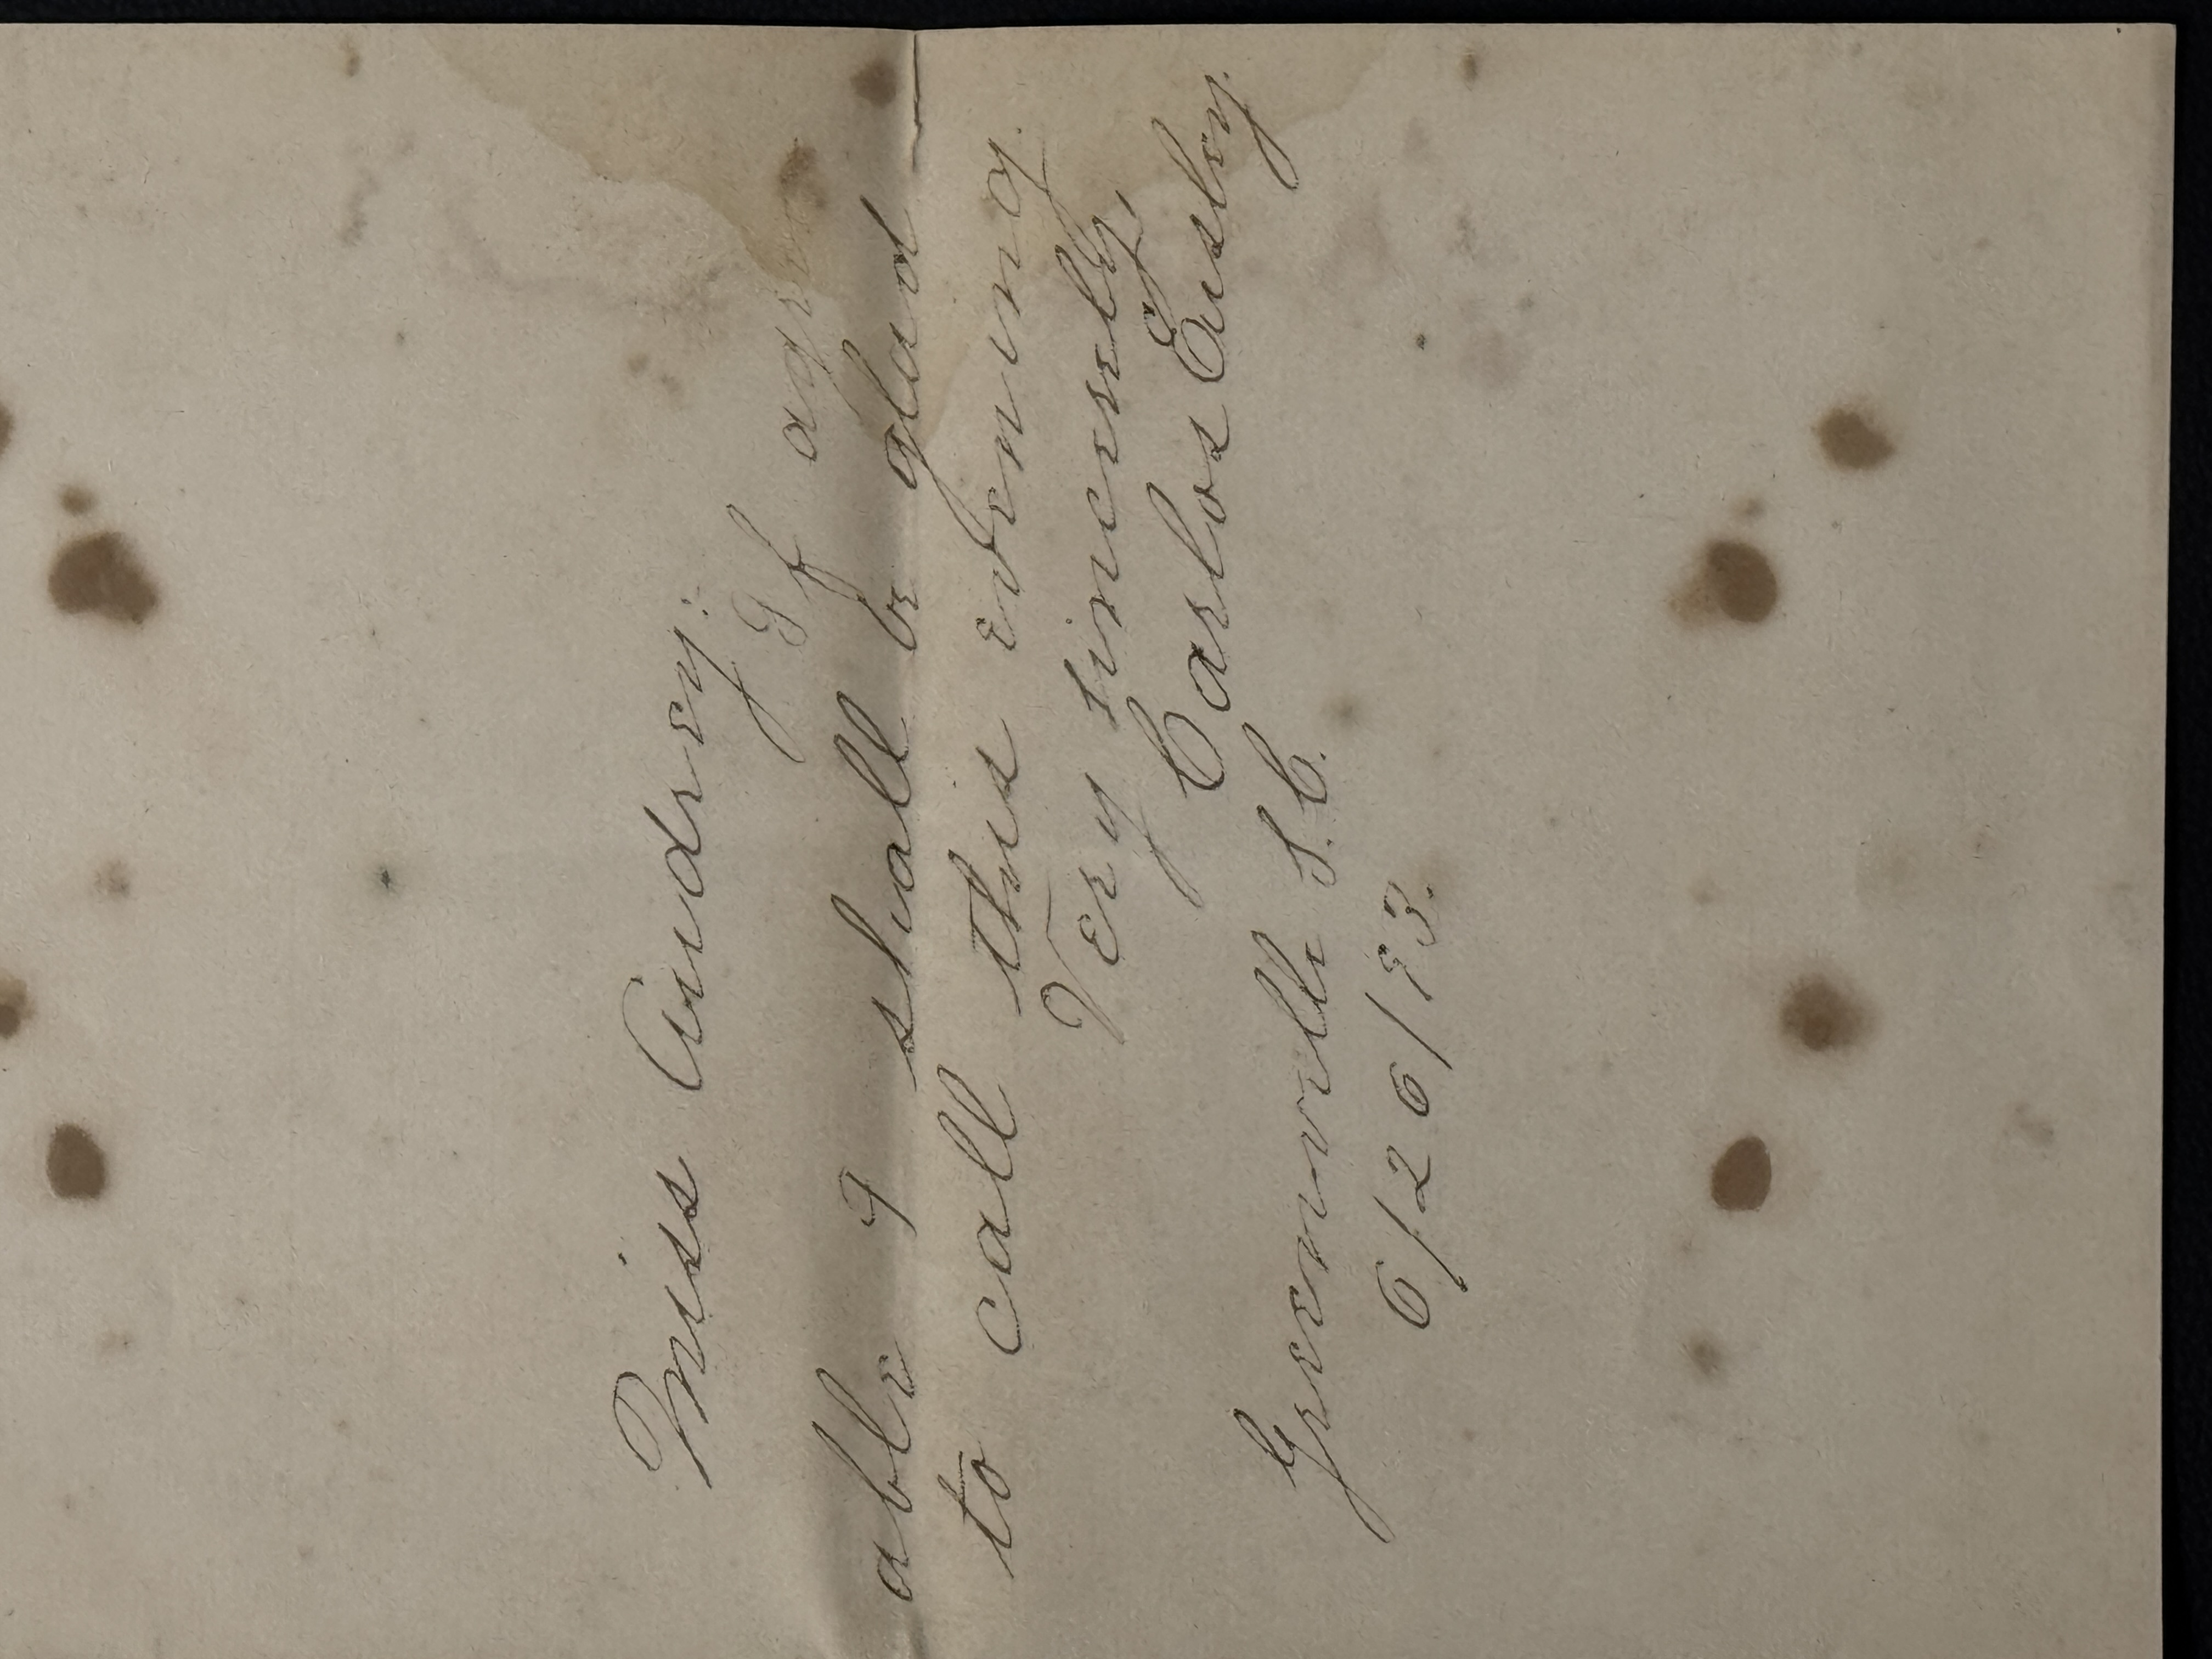 Miss Audrey:
If agree
able I shall be glad
to call this evening.
Very sincerely,
Carlos Easley.
Greenville S.C.
6/26/93.